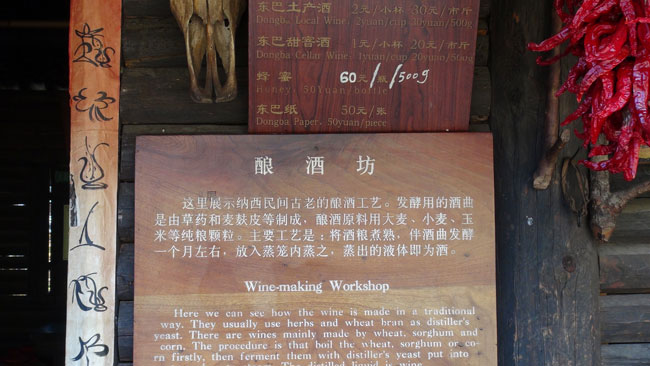 东巴土产酒 2元/小杯 30元/市斤
Dongba Local Wine, 2yuan/cup 30yuan/500g
东巴甜窖酒 1元/小杯 20元/市斤
Dongba Cellar Wine, 1yuan/cup 20yuan/500g
蜂蜜 60元/瓶/500g
Honey, 50Yuan/bottle
东巴纸 50元/张
Dongba Paper, 50yuan/piece
酿酒坊
这里展示纳西民间古老的酿酒工艺。发酵用的酒曲
是由草药和麦麸皮等制成，酿酒原料用大麦、小麦、玉
米等纯粮颗粒。主要工艺是：将酒粮煮熟，伴酒曲发酵
一个月左右，放入蒸笼内蒸之，蒸出的液体即为酒。
Wine-making Workshop
Here we can see how the wine is made in a traditional
way. They usually use herbs and wheat bran as distiller's
yeast. There are wines mainly made by wheat, sorghum and
corn. The procedure is that boil the wheat, sorghum or co-
rn firstly, then ferment them with distiller's yeast put into
The distilled liquid is wine.